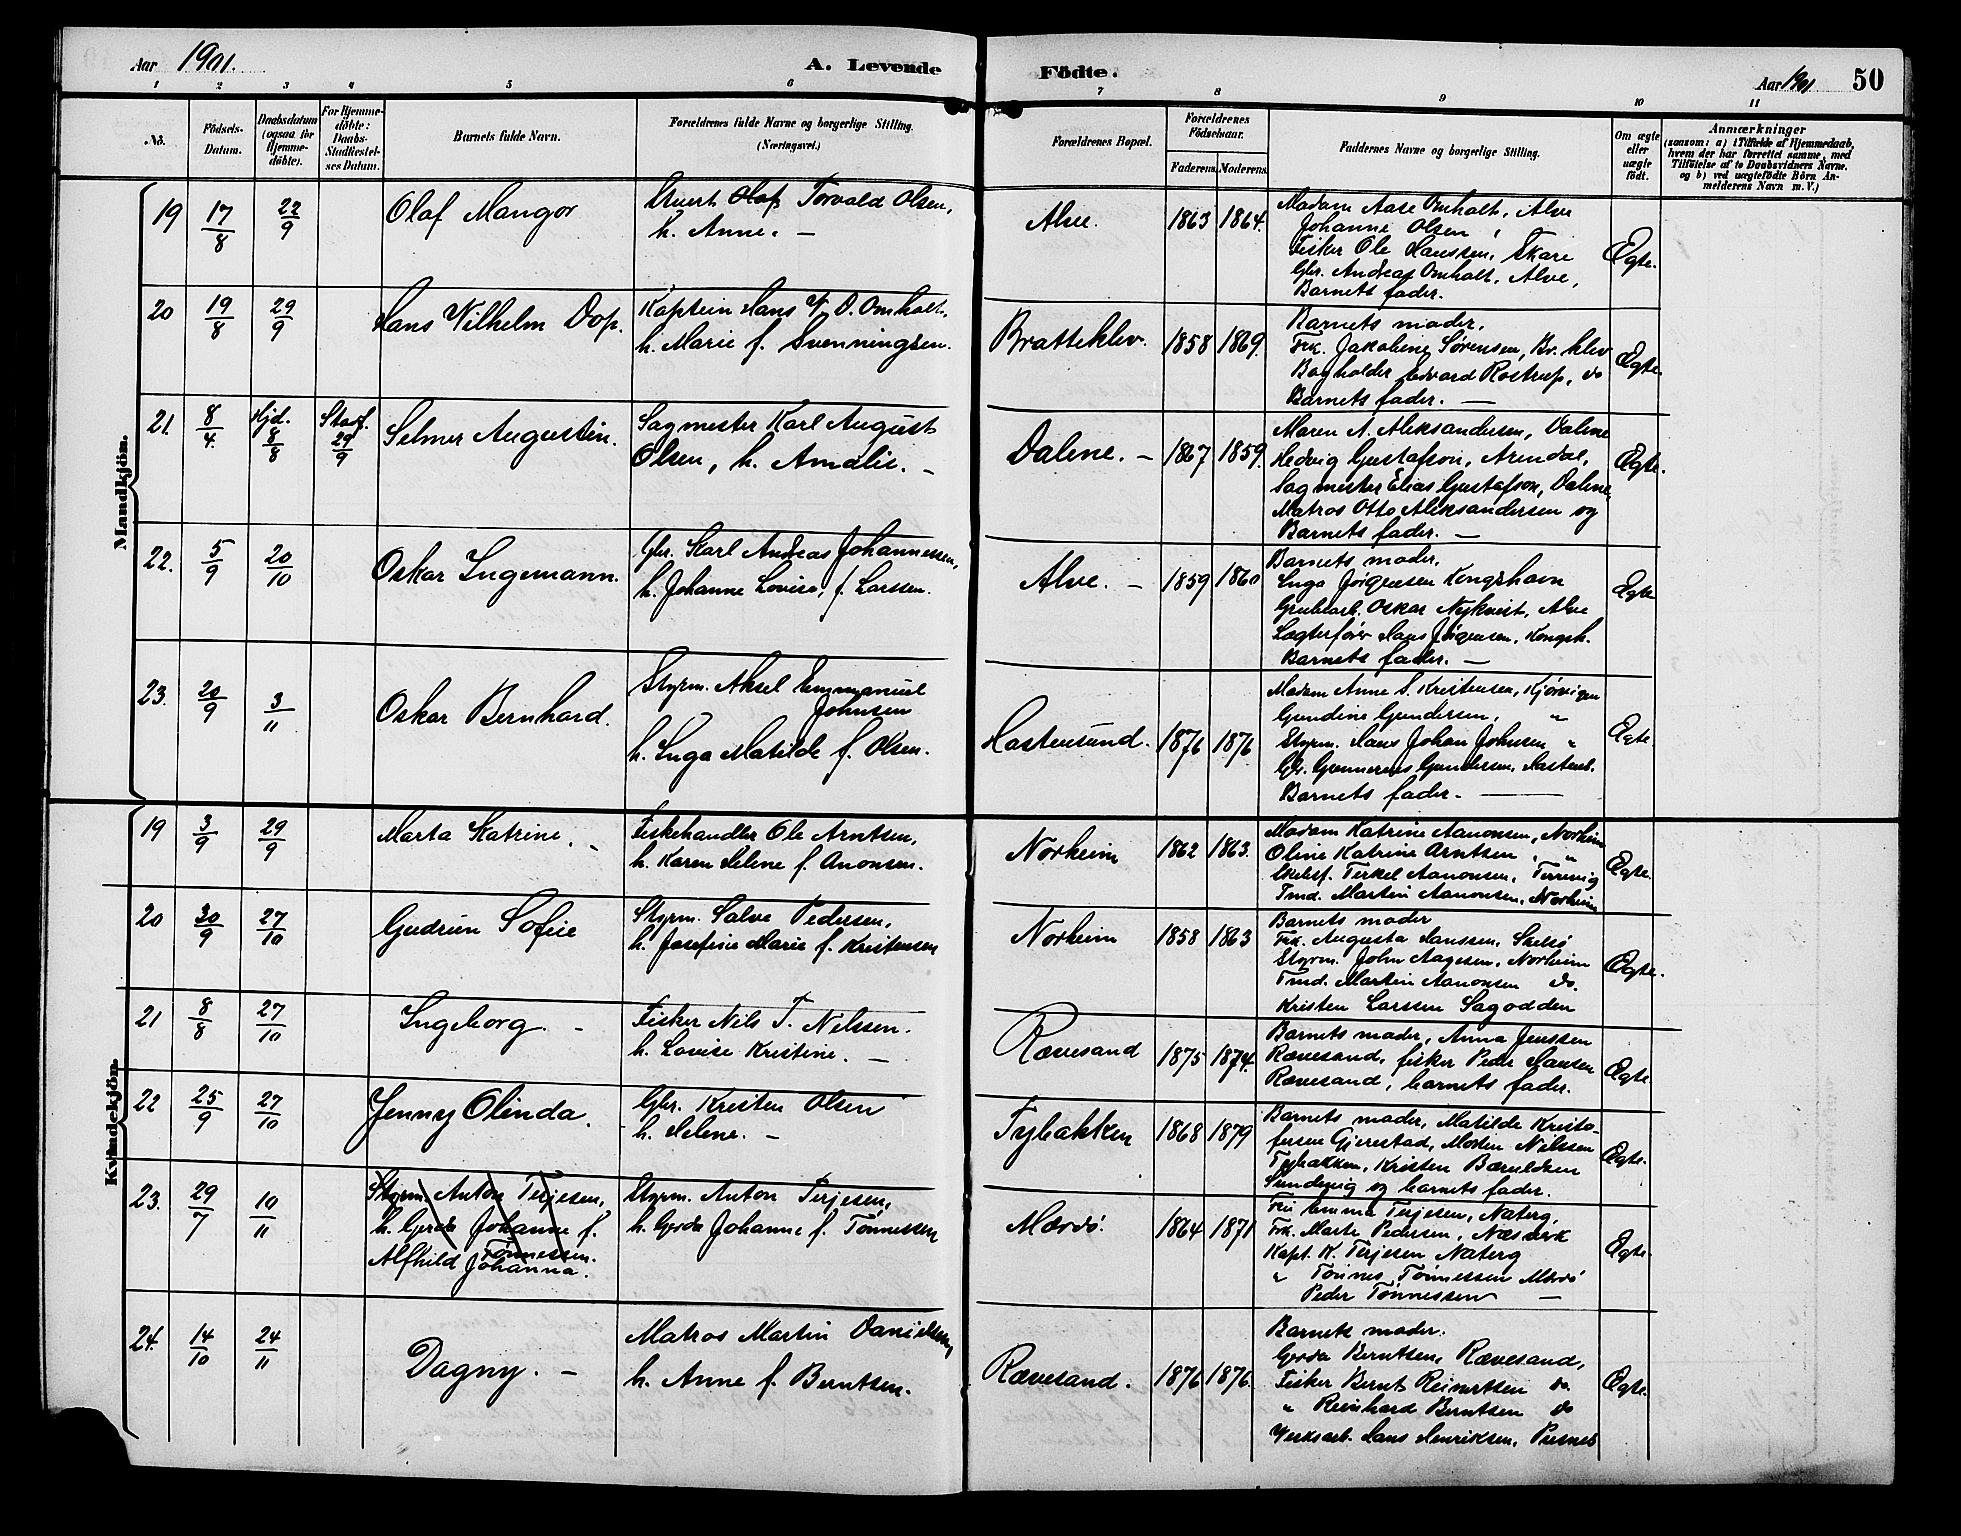 Aar 1901.
A. Levende
Födte.
Aar 1901
50
1 2 3 4 5 6 7 8 9 10 11
No.
Födsels-Datum.
Daabsdatum (ogsaa for Hjemme-döbte).
For Hjemme-döbte: Daabs-Stadfæstel-ses Datum.
Barnets fulde Navn.
Forældrenes fulde Navne og borgerlige Stilling. (Næringsvei.)
Forældrenes Bopæl.
Forældrenes Födselsaar.
Faderens. Moderens.
Faddernes Navne og borgerlige Stilling.
Om ægte eller uægte födt.
Anmærkninger
(saasom: a) i Tilfælde af Hjemmedaab,
hvem der har forrettet samme, med
Tilföielse af to Daabsvidners Navne.
og b) ved uægtefödte Börn An-
melderens Navn m. V.)
Mandkjön.
19 17/8 22/9 Olaf Mangor
Olaf Torvald Olsen,
h. Anne. —
Alve. 1863 1864.
Madam Aase Omholt, Alve
Johanne Olsen "
Fisker Ole Hanssen, Skare
Gbr. Andreas Omholt, Alve,
Barnets fader.
Ægte.
20 19/8 29/9 Hans Vilhelm Dop.
Kaptein Hans V. D. Omholt,
h. Marie f. Svenningsen.
Bratteklev. 1858 1869.
Barnets moder,
Frk. Jakobine Sørensen, Br. klev
Bogholder Edvard Rostrup, do
Barnets fader. —
Ægte.
21. 8/4. Hjd. 8/8 Stadf. 29/9 Selmer Augustin.
Sagmester Karl August
Olsen, h. Amalie. —
Dalene. — 1867 1859.
Maren A. Aleksandersen, Dalene
Hedvig Gustafson, Arendal,
Sagmester Elias Gustafson, Dalene,
Matros Otto Aleksandersen og
Barnets fader. —
Ægte.
22. 5/9 20/10 Oskar Ingemann.
Gbr. Karl Andreas Johannessen,
h. Johanne Lovise, f. Larssen.
Alve. — 1859 1860
Barnets moder,
Inga Jörgensen Kongshavn
Grubearb. Oskar Nykvist, Alve
Lægterfører Hans Jörgensen, Kongsh.
Barnets fader. —
Ægte
23. 20/9 3/11 Oskar Bernhard.
Styrm. Aksel Emmanuel
Johnsen
h. Inga Matilde f. Olsen.
Hastensund. 1876 1876
Madam Anne S. Kristensen, Kjörvigen
Gundine Gundersen, "
Styrm. Hans Johan Johnsen "
Gbr. Gunnerius Gundersen, Hastens.
Barnets fader. —
Ægte.
Kvindekjön.
19 3/9 29/9 Marta Katrine. —
Fiskehandler Ole Arntsen,
h. Karen Helene f. Anonsen.
Norheim 1862 1863.
Madam Katrine Aanonsen, Norheim
Oline Katrine Arntsen, "
Skibsf. Terkel Aanonsen,
Tmd. Martin Aanonsen, Norheim
Ægte.
20 30/9 27/10 Gudrun Sofie
Styrm. Salve Pedersen,
h. Josefine Marie f. Kristensen
Norheim 1858 1863
Barnets moder
Frk. Augusta Hanssen, Skilsö
Styrm. John Aagesen, Norheim
Tmd. Martin Aanonsen do.
Kristen Larssen Sagodden
Ægte.
21 8/8 27/10 Ingeborg. —
Fisker Nils T. Nilssen.
h. Lovise Kristine. —
Rævesand 1875 1874.
Barnets moder, Anna Jenssen
Rævesand, fisker Peder Hansen
Rævesand, barnets fader.
Ægte.
22 25/9 27/10 Jenny Olinda.
Gbr. Kristen Olsen
h. Helene. —
Tybakken 1868 1879
Barnets moder, Matilde Kristo-
fersen Gjerestad, Morten Nilssen
Tybakken, Kristen Bæruldsen
Sundevig og barnets fader.
Ægte.
23. 29/7 10/11
Styrm. Anton Terjesen,
h. Gerda Johanne f.
Tønnessen.
Alfhild Johanna.
Styrm. Anton Terjesen,
h. Gerda Johanne f. Tønnessen
Mærdö. 1864 1871
Fru Emma Terjesen, Naterø
Frk. Marte Pedersen, Næsverk
Kapt. K. Terjesen Naterø
" Tönnes Tönnessen Mærdö
Peder Tönnessen —
Ægte.
24. 14/10 24/11 Dagny. —
Matros Martin Danielsen,
h. Anne f. Berntsen.
Rævesand. 1876 1876.
Barnets moder.
Gerda Berntsen, Rævesand,
Fisker Bernt Reinertsen do.
" Reinhard Berntsen do
Verksarb. Hans Henriksen, Pusnes
Ægte.